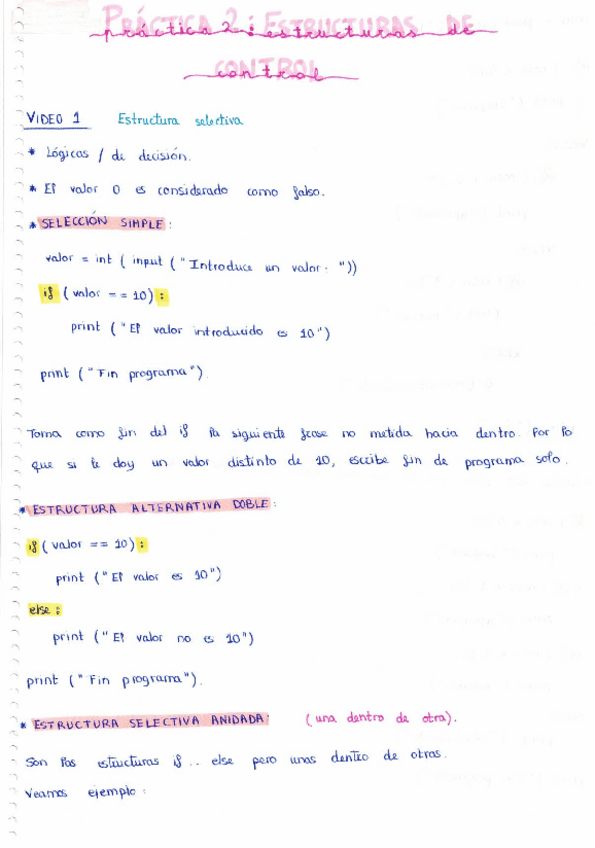 PRÁCTICA 2: ESTRUCTURAS DE
práctica 2: estructuras de
CONTROL
control
VIDEO 1 Estructura selectiva
* Lógicas / de decisión.
* El valor 0 es considerado como falso.
* SELECCIÓN SIMPLE:
valor = int ( input ( "Introduce un valor: "))
if ( valor == 10) :
print ( "El valor introducido es 10")
print ( "Fin programa").
Toma como fin del if la siguiente frase no metida hacia dentro. Por lo
que si le doy un valor distinto de 10, escribe fin de programa solo.
* ESTRUCTURA ALTERNATIVA DOBLE:
if ( valor == 10) :
print ( "El valor es 10")
else :
print ( "El valor no es 10")
print ( "Fin programa").
* ESTRUCTURA SELECTIVA ANIDADA: (una dentro de otra).
Son las estructuras if .. else pero unas dentro de otras.
Veamos ejemplo: